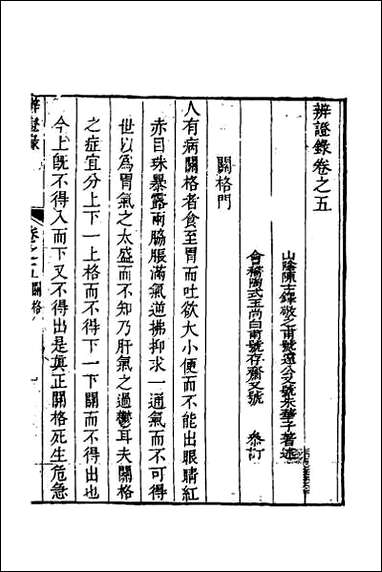 辨證錄卷之五
山陰陳士鐸敬之甫號遠公又號朱華子著述
會稽陶式玉尚白甫號存齋又號　　參訂
關格門
人有病關格者食至胃而吐欲大小便而不能出眼睛紅
赤目珠暴露兩脇脹滿氣逆拂抑求一通氣而不可得
世以爲胃氣之太盛而不知乃肝氣之過鬱耳夫關格
之症宜分上下一上格而不得下一下關而不得出也
今上旣不得入而下又不得出是眞正關格死生危急
辨證錄
卷之五關格